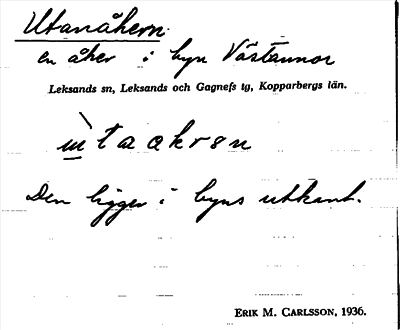 Utanåkern
en åker i byn Västannor
Leksands sn, Leksands och Gagnefs tg, Kopparbergs län.
Den ligger i byns utkant.
ERIK M. CARLSSON, 1936.